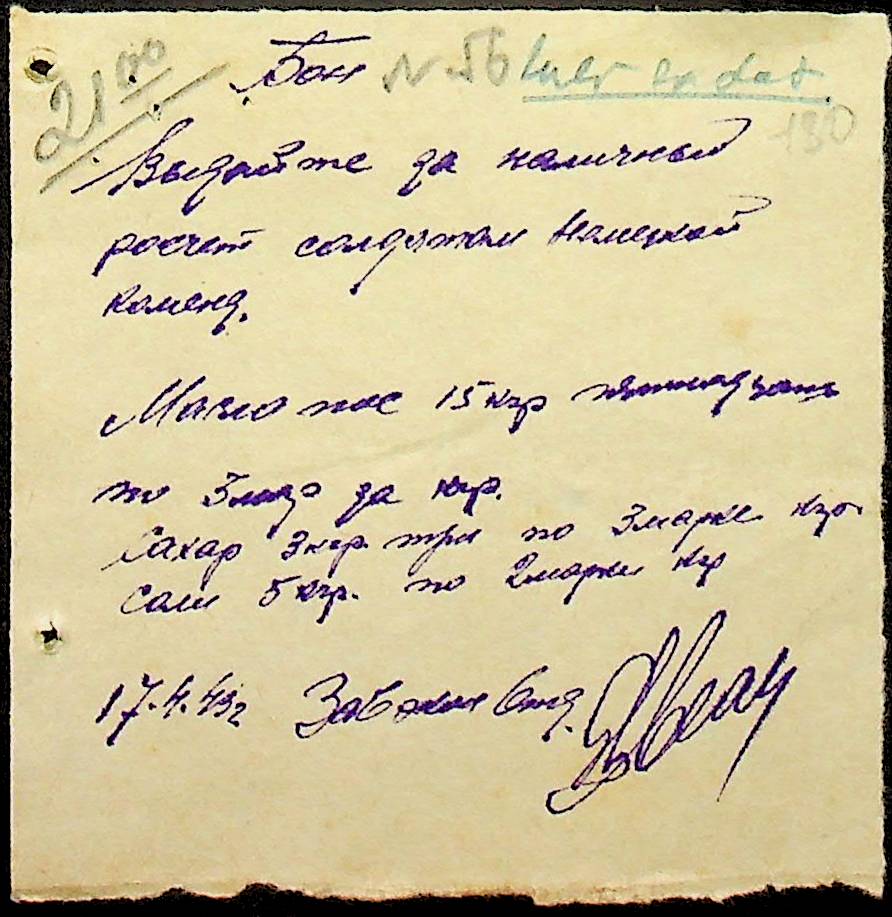 21 00
Бон N 56
130
Выдайте за наличный
росчет солдатам Немецкой
Коменд.
Масло 15 кгр пятнадцать
по 3 за кгр.
Сахар 3 кгр. три по 3 марке кгр.
Сали 5 кгр. по 2 марки кгр
17.4.43 г Зав